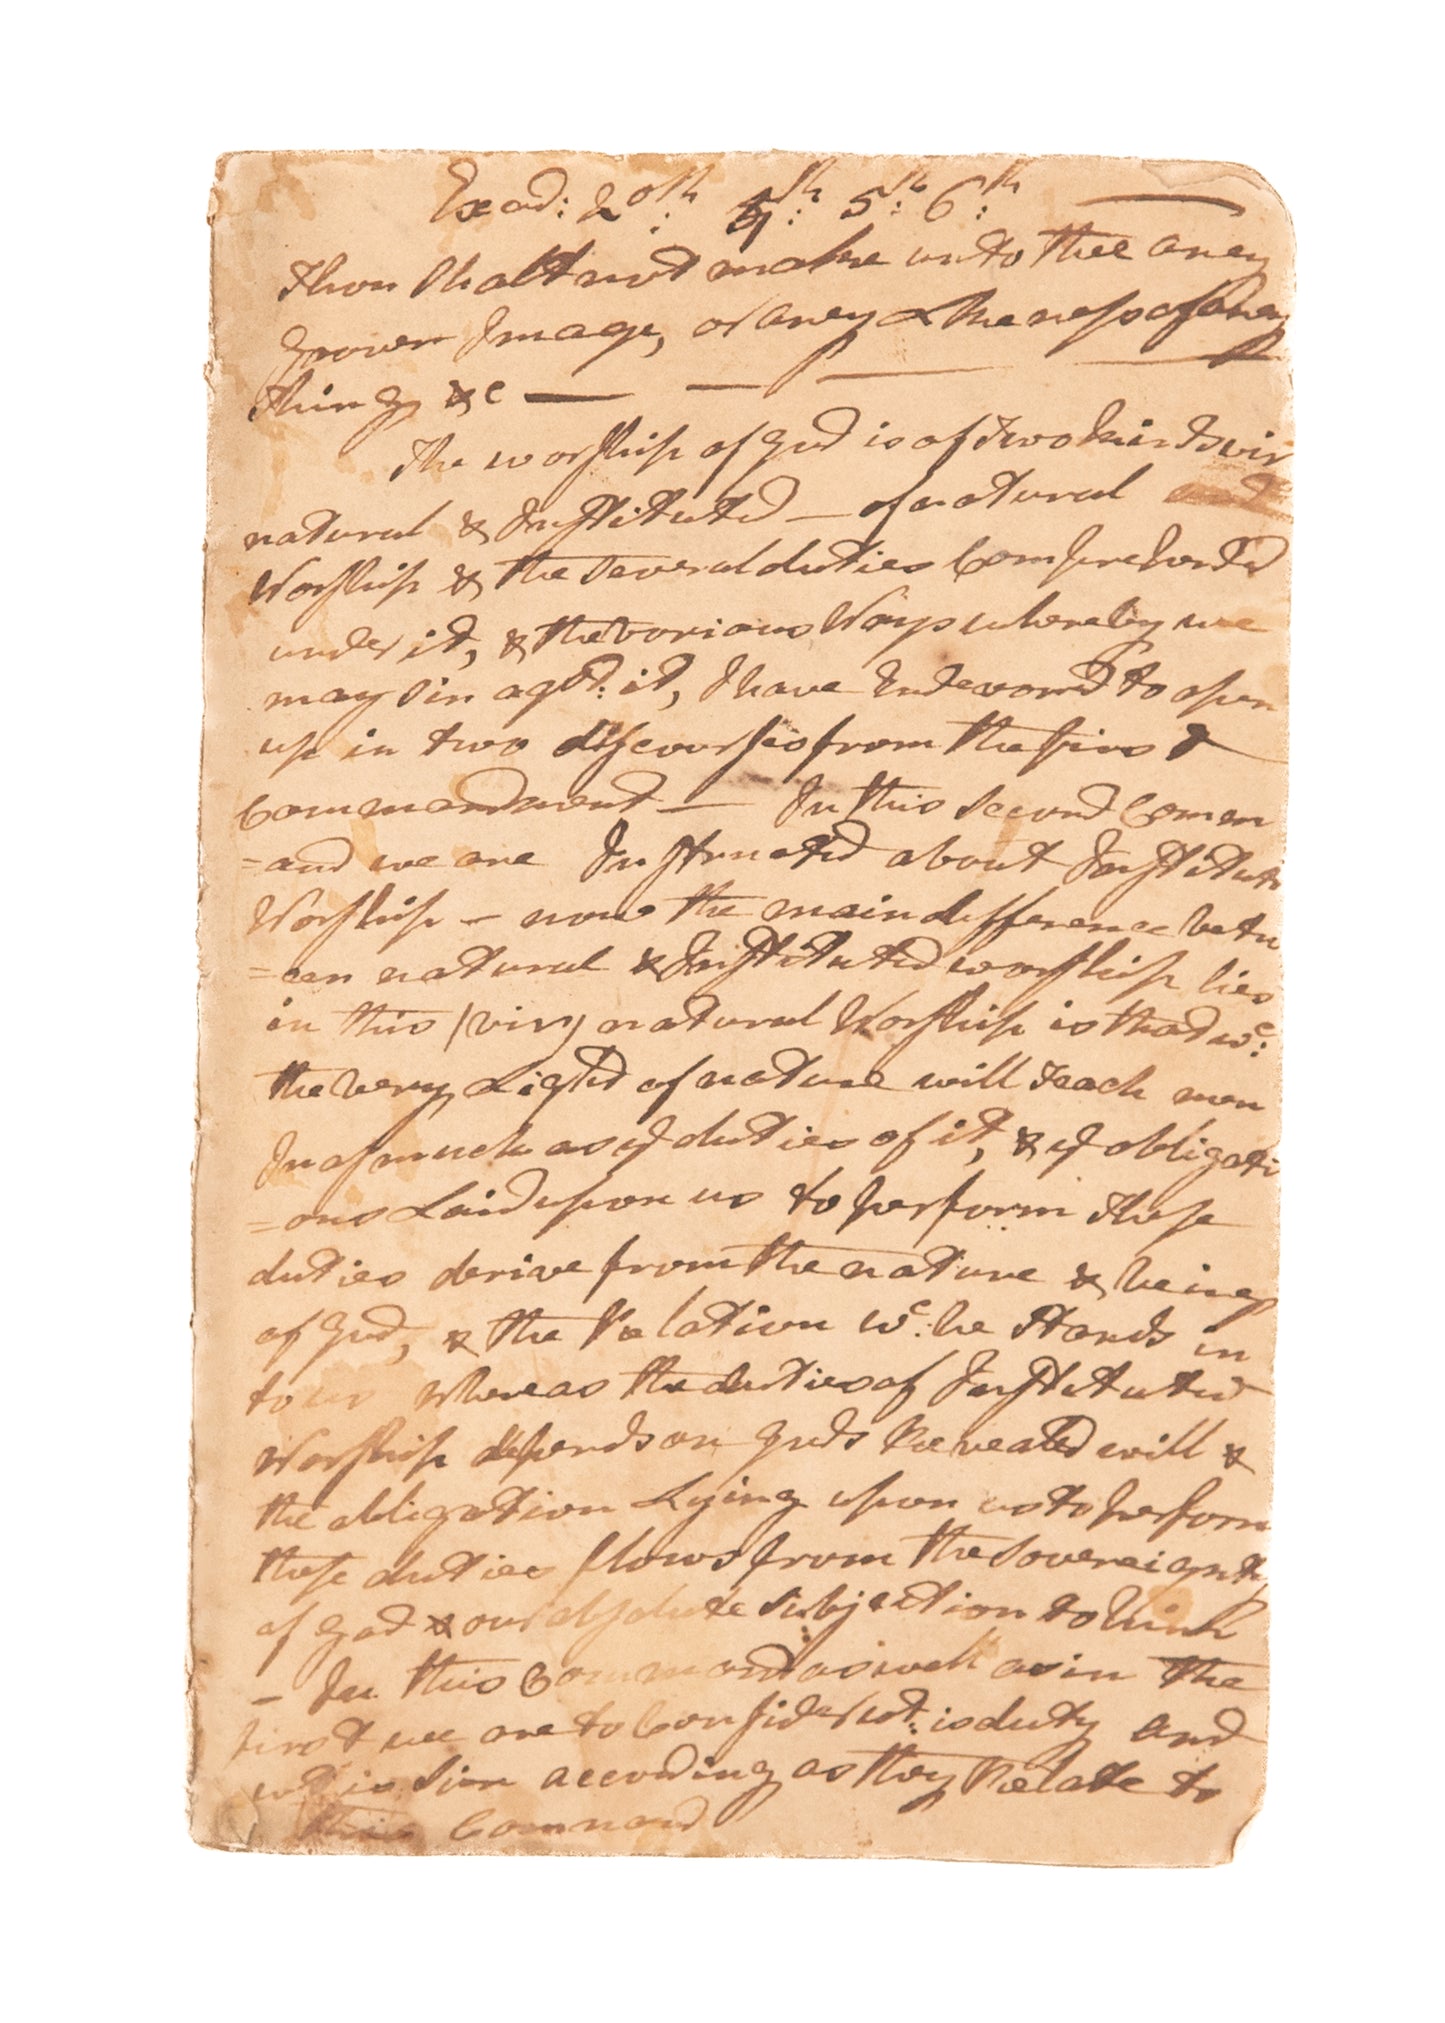 Exod: 20th. 4th: 5th: 6th: —
Thou Shalt not make unto thee aney
Graven Image, or aney Likeness of aney
thing &c — — —
The worship of God is of two kinds viz
natural & Instituted — of natural
Worship & the several duties Comprehended
under it, & the various Ways whereby we
may sin agst: it, I have Endevored to open
up in two discourses from the first
Commandment — In this second Comm
=and we are Instructed about Institute
Worship — now the main difference betw
=een natural & Instituted worship lies
in this (viz) natural Worship is that wc:
the very Light of nature will teach men
Inasmuch as ye duties of it, & ye obligati
=ons Laid upon us to perform these
duties derive from the nature & being
of God, & the Relation wc: he Stands in
to us Whereas the duties of Instituted
Worship depends on Gods Revealed will &
the obligation Lying upon us to perform
these duties flows from the Sovereignty
of God & our absolute Subjection to him
— In this Command as well as in the
first we are to Consider wt: is duty and
wt: is sin according as they Relate to
this Command